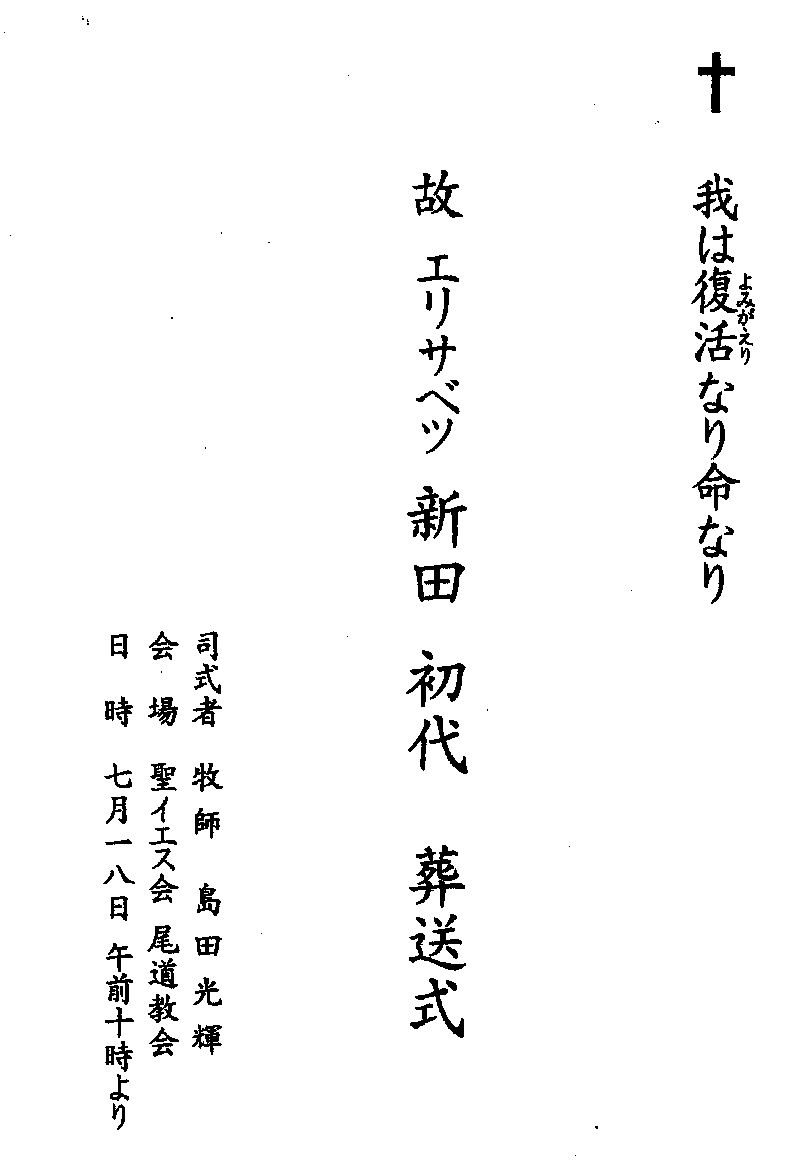 我は復活なり命なり
よみがえり
故 エリサベツ 新田 初代 葬送式
司式者 牧師 島田光輝
会場 聖イエス会 尾道教会
日時 七月一八日 午前十時より